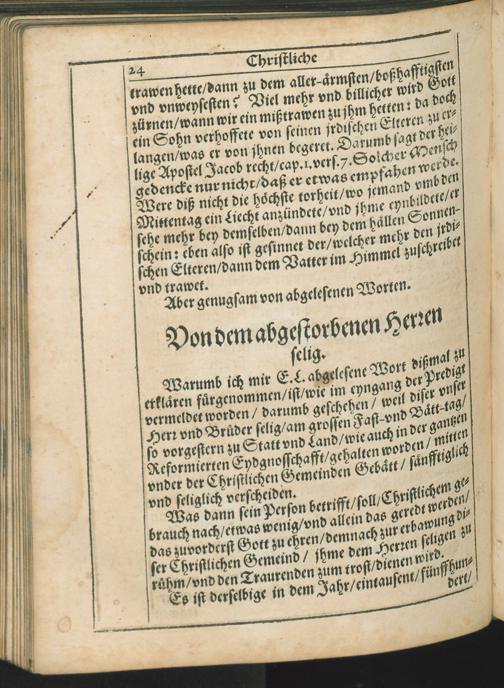 24
Christliche
trawen hette/dann zu dem aller-ärmsten/boßhafftigsten
vnd vnweysesten? Viel mehr vnd billicher wird Gott
zürnen/wann wir ein mißtrawen zu jhm hetten: da doch
ein Sohn verhoffete von seinen jrdischen Elteren zu er-
langen/was er von jhnen begeret. Darumb sagt der hei-
lige Apostel Jacob recht/cap.1.vers.7. Solcher Mensch
gedencke nur nicht/daß er etwas empfahen werde.
Were diß nicht die höchste torheit/wo jemand vmb den
Mittentag ein Liecht anzündete/vnd jhme eynbildete/er
sehe mehr bey demselben/dann bey dem hällen Sonnen-
schein: eben also ist gesinnet der/welcher mehr den jrdi-
schen Elteren/dann dem Vatter im Himmel zuschreibet
vnd trawet.
Aber genugsam von abgelesenen Worten.
Von dem abgestorbenen Herren
selig.
Warumb ich mir E.L. abgelesene Wort dißmal zu
erklären fürgenommen/ist/wie im eyngang der Predigt
vermeldet worden/ darumb geschehen/ weil diser vnser
Herr vnd Brüder selig/am grossen Fast-vnd Bätt-tag/
so vorgestern zu Statt vnd Land/wie auch in der gantzen
Reformierten Eydgnosschafft/gehalten worden/ mitten
vnder der Christlichen Gemeinden Gebätt/ sänfftiglich
vnd seliglich verscheiden.
Was dann sein Person betrifft/soll/Christlichem ge-
brauch nach/etwas wenig/vnd allein das geredt werden/
das zuvorderst Gott zu ehren/demnach zur erbawung di-
ser Christlichen Gemeind/ jhme dem Herren seligen zu
rühm/vnd den Traurenden zum trost/dienen wird.
Es ist derselbige in dem Jahr/eintausent/fünffhun-
dert/